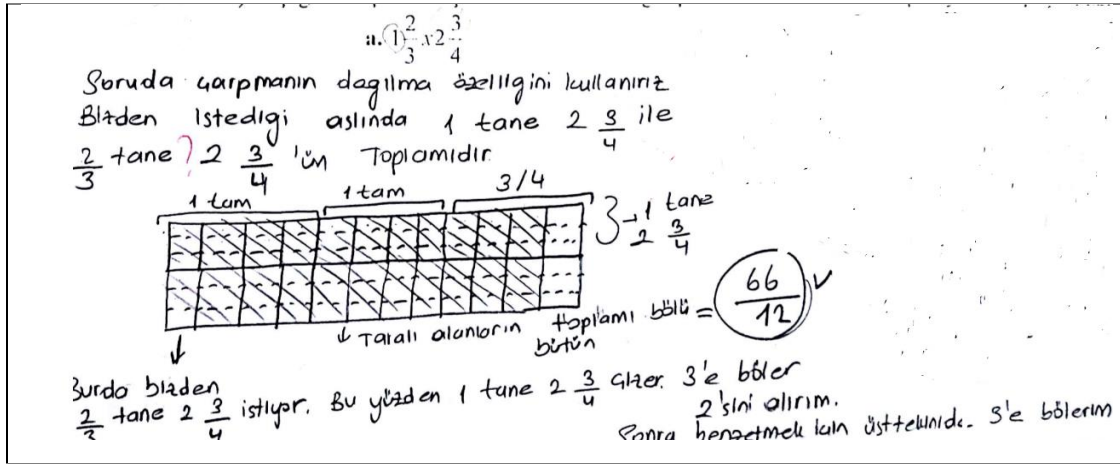 a. 1 2/3 x 2 3/4
Soruda çarpmanın dagılma özelligini kullanırız
Bizden istedigi aslında 1 tane 2 3/4 ile
2/3 tane ? 2 3/4 'ün Toplamıdır
1 tam 1 tam 3/4
1 tane
2 3/4
Taralı alanların toplamı bölü bütün = 66/12
Burdo bizden
2/3 tane 2 3/4 istiyor. Bu yüzden 1 tane 2 3/4 çizer. 3'e böler
2'sini alırım.
Sonra benzetmek için üsttekinide. 3'e bölerim